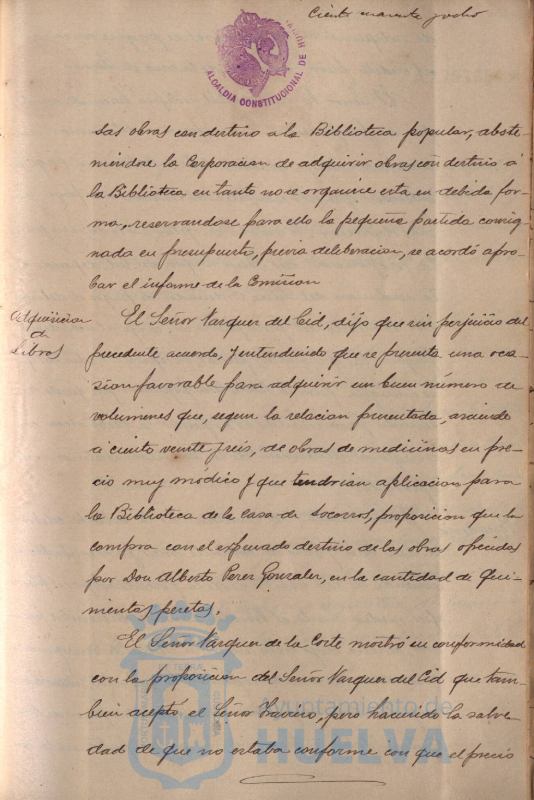 Ciento cuarenta y ocho
ALCALDIA CONSTITUCIONAL DE HUELVA
las obras con destino á la Biblioteca popular, abste-
niendose la Corporacion de adquirir obras con destino á
la Biblioteca en tanto no se organice esta en debida for-
ma, reservandose para ello la pequeña partida consig-
nada en presupuesto, previa deliberacion, se acordó apro-
bar el informe de la Comision
Adquisicion
de
Libros
El Señor Vazquez del Cid, dijo que sin perjuicio del
precedente acuerdo, y entendiendo que se presenta una oca-
sion favorable para adquirir un buen número de
volumenes que, segun la relacion presentada, asciende
á ciento veinte y seis, de obras de medicinas en pre-
cio muy módico y que tendrian aplicacion para
la Biblioteca de la Casa de Socorros, proposicion que la
compra con el expresado destino de las obras ofrecidas
por Don Alberto Perez Gonzalez, en la cantidad de qui-
nientas pesetas.
El Señor Vazquez de la Corte mostró su conformidad
con la proposicion del Señor Vazquez del Cid que tam-
bien aceptó el Señor, pero haciendo la salve-
dad de que no estaba conforme con que el precio
Ayuntamiento de
HUELVA